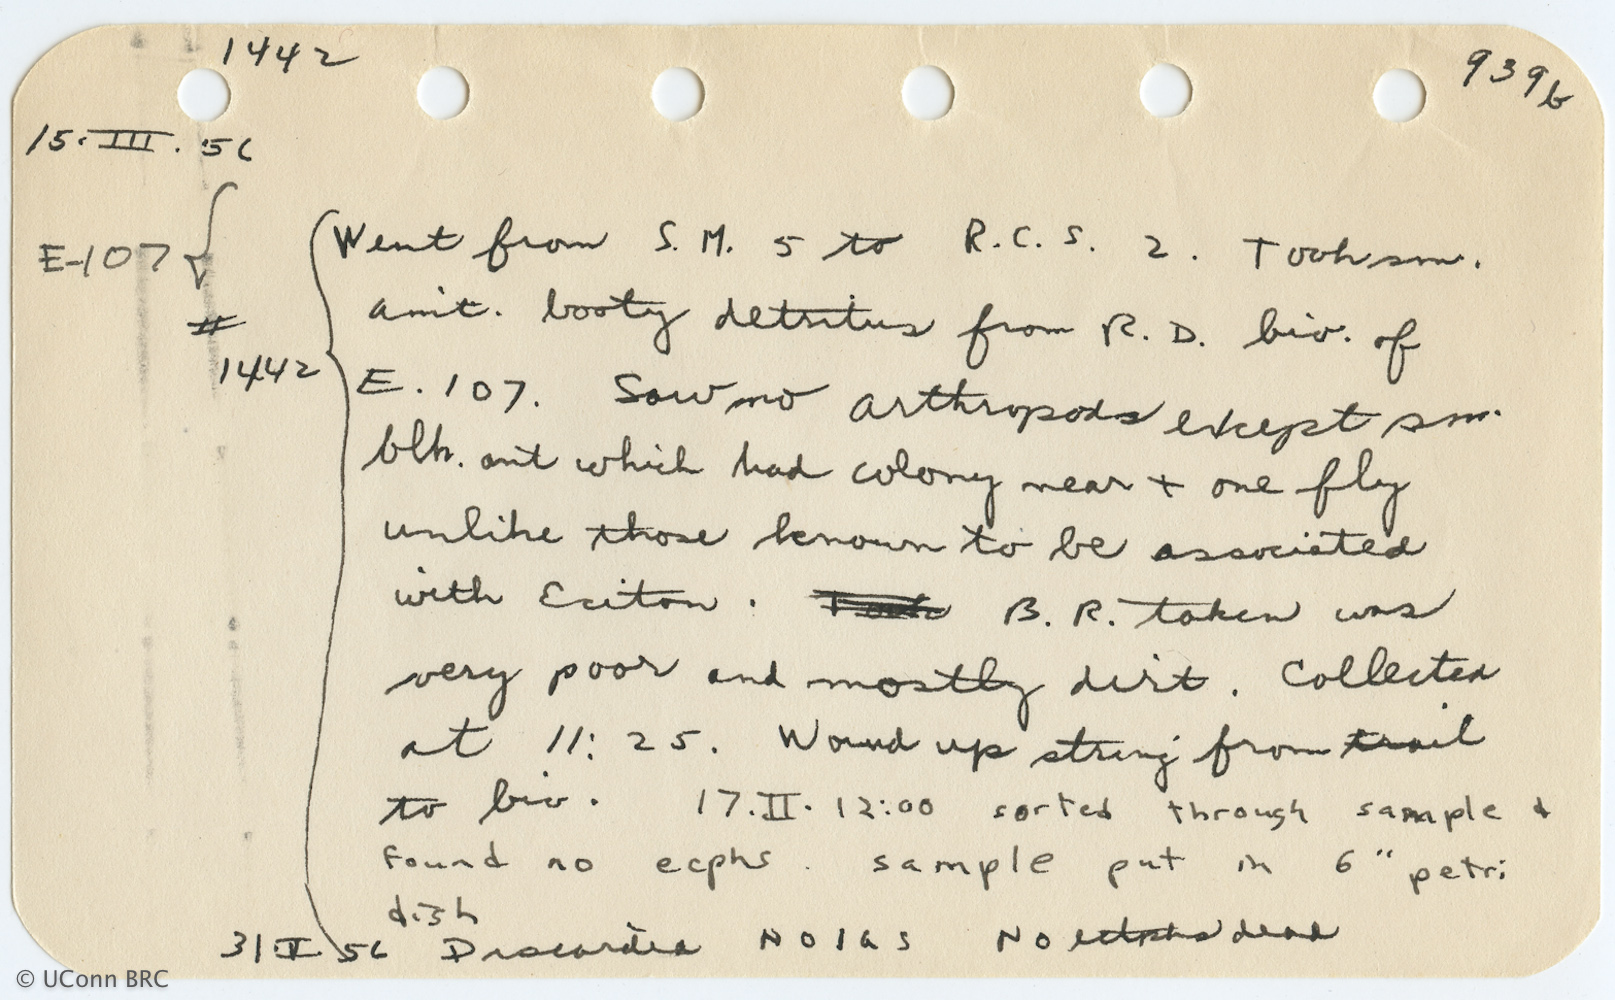 1442
939b
15.III.56
E-107
#
1442
Went from S.M. 5 to R.C.S. 2. Took sm.
amt. booty detritus from R.D. biv. of
E.107. Saw no arthropods except sm.
blk. ant which had colony near + one fly
unlike those known to be associated
with Eciton. B.R. taken was
very poor and mostly dirt. Collected
at 11:25. Wound up string from trail
to biv. 17.II. 12:00 sorted through sample +
found no ecphs. sample put in 6" petri
dish
31 V 56 Discarded No no dead
© UConn BRC